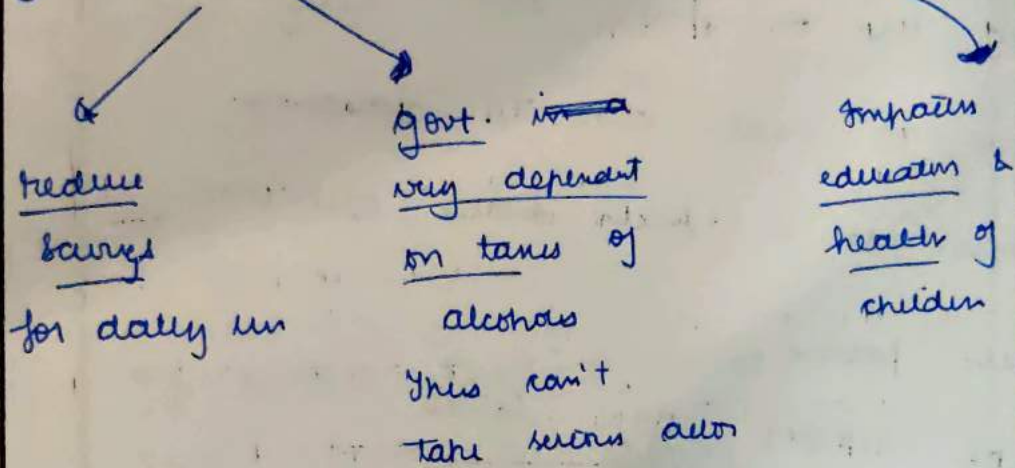 reduce
savings
for daily use
govt. is a
very dependent
on taxes of
alcohols
Thus can't
take serious action
Impacts
education &
health of
children